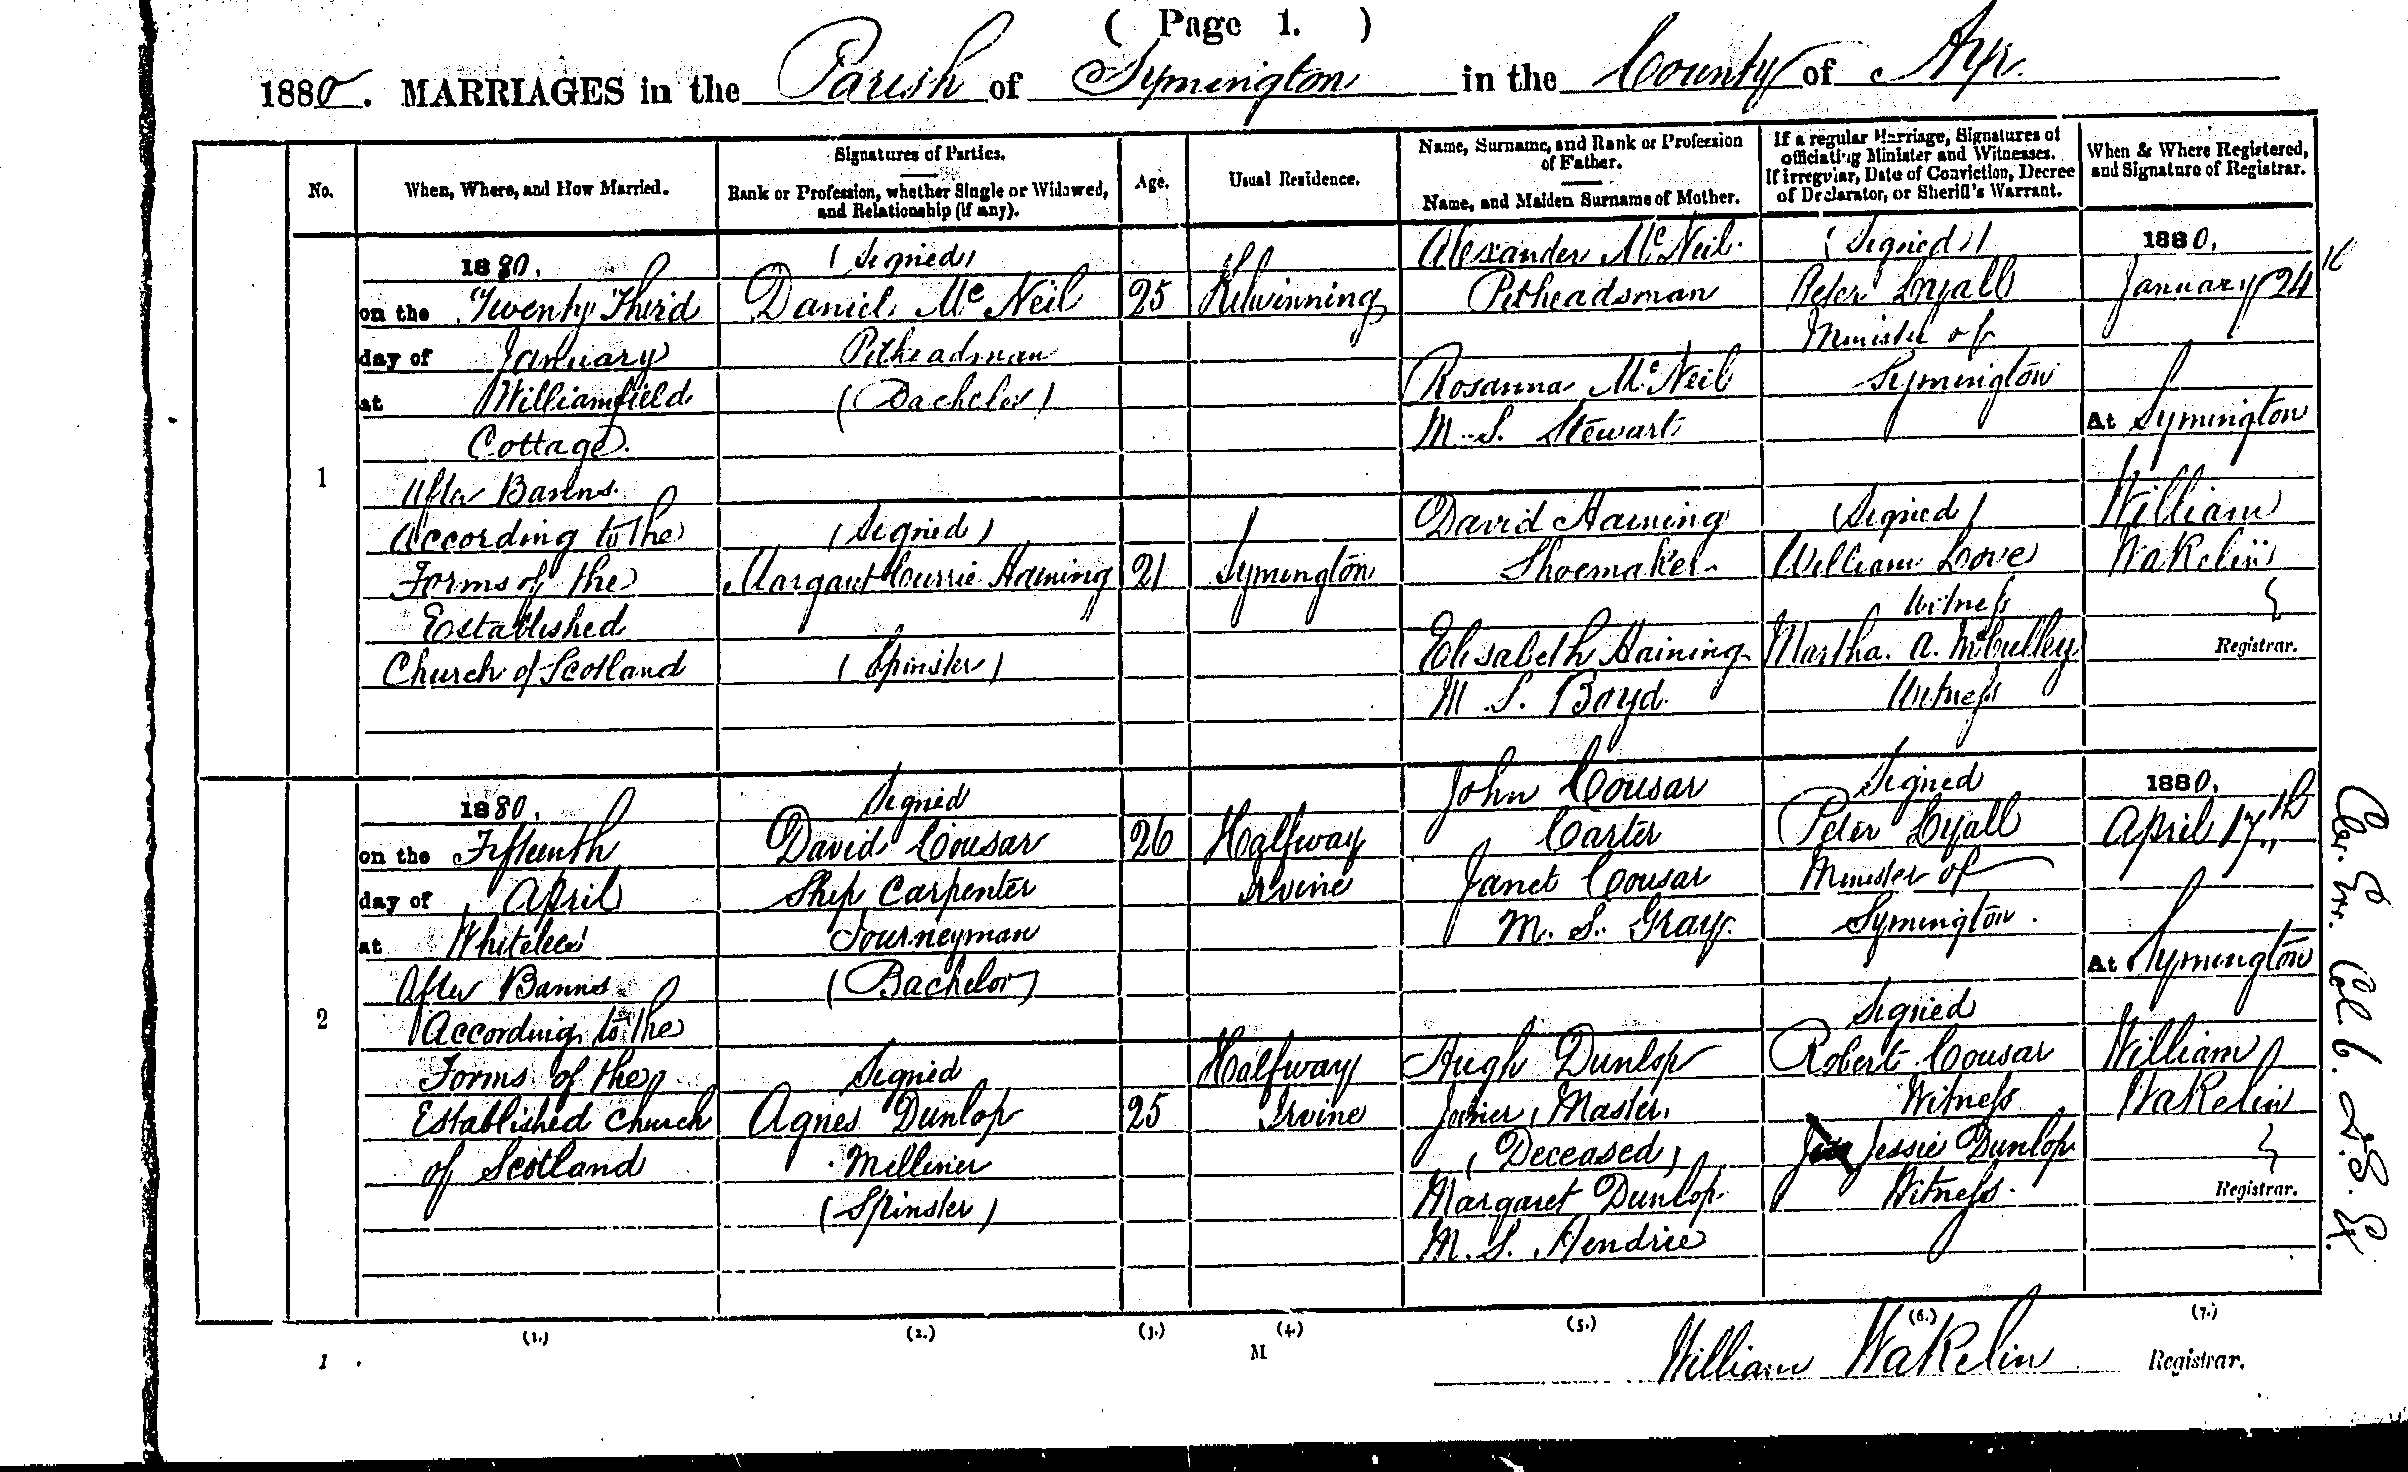 ( Page 1. )
1880. MARRIAGES in the Parish of Symington in the County of Ayr.
No.
When, Where, and How Married.
Signatures of Parties.
Rank or Profession, whether Single or Widowed,
and Relationship (if any).
Age.
Usual Residence.
Name, Surname, and Rank or Profession
of Father.
Name, and Maiden Surname of Mother.
If a regular Marriage, Signatures of
officiating Minister and Witnesses.
If irregular, Date of Conviction, Decree
of Declarator, or Sheriff's Warrant.
When & Where Registered,
and Signature of Registrar.
1
1880.
on the Twenty Third
day of January
at Williamfield
Cottage.
After Banns.
According to the
Forms of the
Established
Church of Scotland
(Signed)
Daniel McNeil
Pitheadsman
(Bachelor)
(Signed)
Margaret Currie Haining
(Spinster)
25
21
Kilwinning
Symington
Alexander McNeil.
Pitheadsman
Rosanna McNeil
M. S. Stewart
David Haining
Shoemaker
Elisabeth Haining
M. S. Boyd.
(Signed)
Peter Lyall
Minister of
Symington
(Signed)
William Love
Witness
Martha. A. McCulley
Witness
1880.
January 24th
At Symington
William
Wakelin
Registrar.
2
1880.
on the Fifteenth
day of April
at Whitelees
After Banns
According to the
Forms of the
Established Church
of Scotland
Signed
David Cousar
Ship Carpenter
Journeyman
(Bachelor)
Signed
Agnes Dunlop
Milliner
(Spinster)
26
25
Halfway
Irvine
Halfway
Irvine
John Cousar
Carter
Janet Cousar
M. S. Gray.
Hugh Dunlop
Joiner, Master,
(Deceased)
Margaret Dunlop
M. S. Hendrie
Signed
Peter Lyall
Minister of
Symington.
Signed
Robert Cousar
Witness
Jessie Dunlop
Witness.
1880.
April 17th
At Symington
William
Wakelin
Registrar.
Cler. Err. Col. 6.
(1.) (2.) (3.) (4.) (5.) (6.) (7.)
1
M
William Wakelin Registrar.